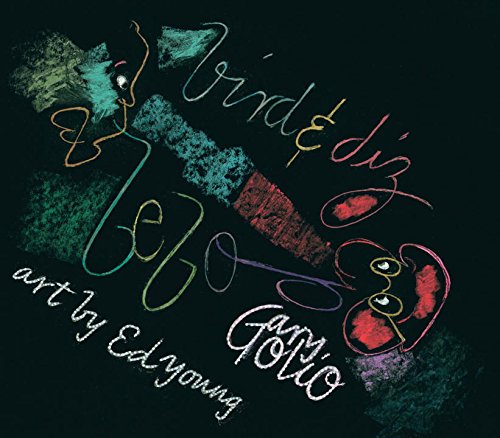 bird & diz
bebop
Gary
Golio
art by Ed young